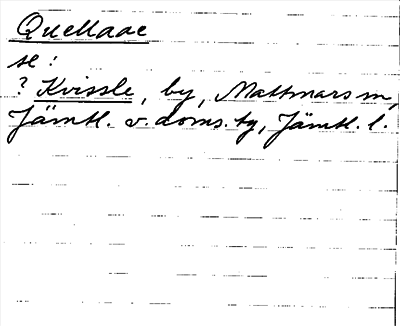 Quellaae
se:
? Kvissle, by, Mattmars sn,
Jämtl. v. doms. tg, Jämtl. l.